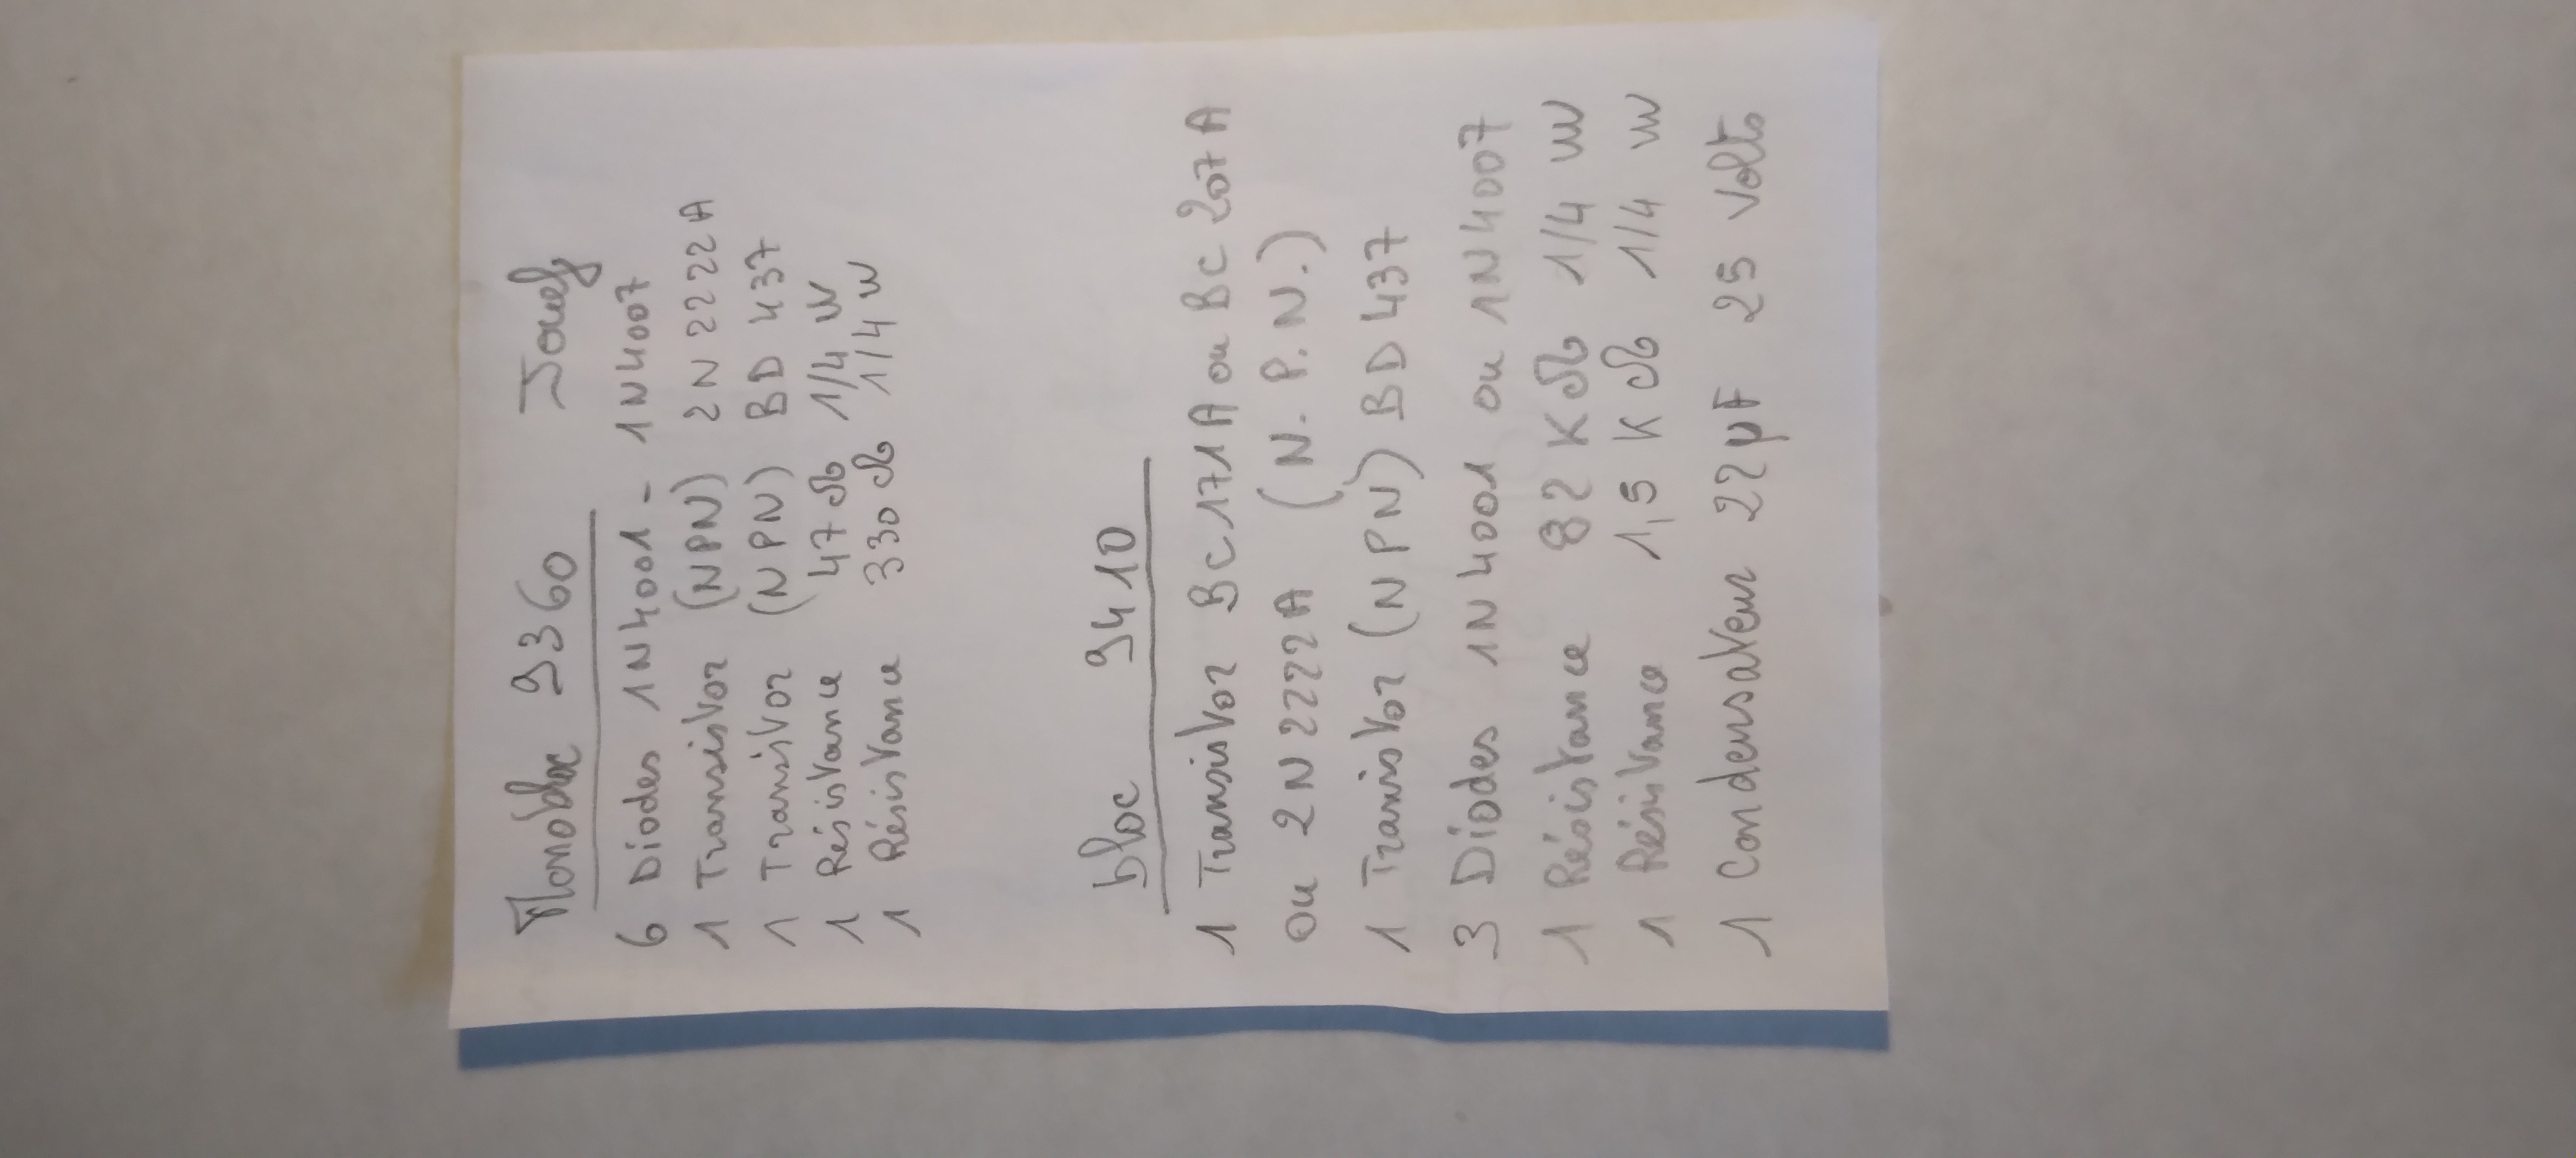 Monobloc 9360 Jouef
6 Diodes 1N4001 - 1N4007
1 Transistor (NPN) 2N2222A
1 Transistor (NPN) BD 437
1 Résistance 47 Ω 1/4 W
1 Résistance 330 Ω 1/4 W
bloc 9410
1 Transistor BC171A ou BC 207A
ou 2N2222A (N.P.N.)
1 Transistor (NPN) BD 437
3 Diodes 1N4001 ou 1N4007
1 Résistance 82 KΩ 1/4 W
1 Résistance 1,5 KΩ 1/4 W
1 Condensateur 22 µF 25 Volts